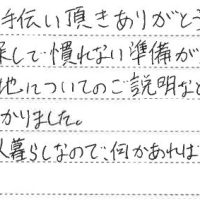 手伝い頂きありがとう
探して慣れない準備が
地についてのご説明など
かりました。
人暮らしなので、何かあれば